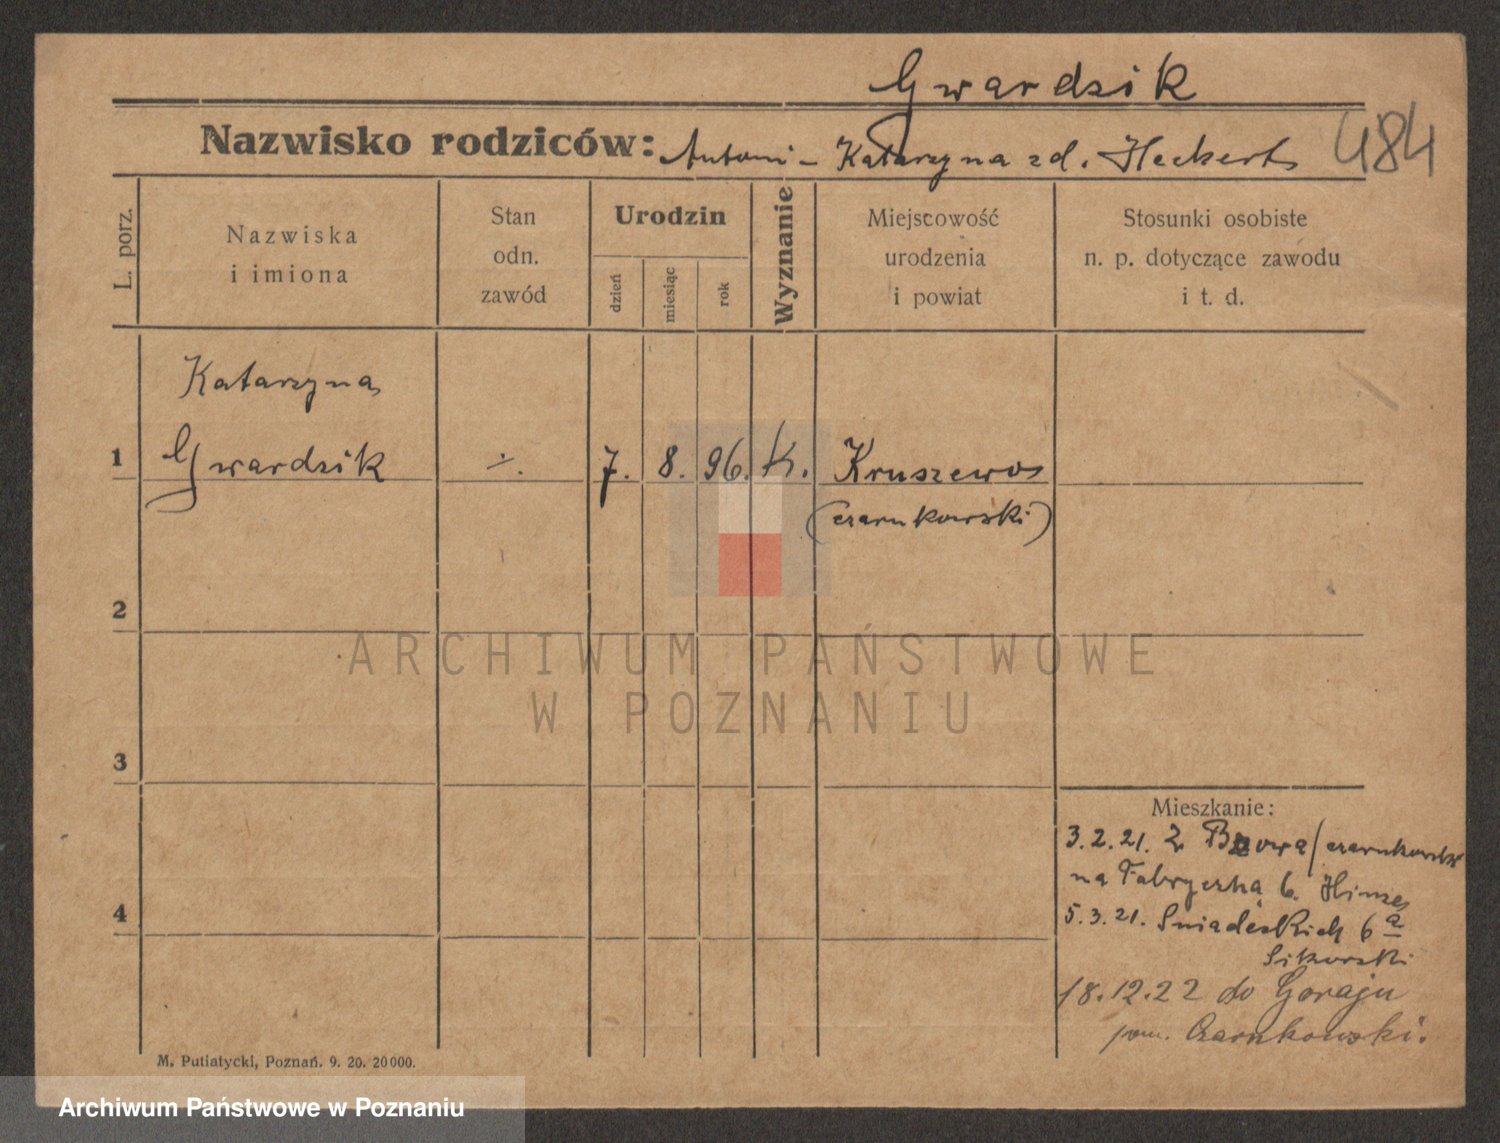 Gwardzik
Nazwisko rodziców: Antoni – Katarzyna zd. Heckert
484
L. porz.
Nazwiska
i imiona
Stan
odn.
zawód
Urodzin
dzień
miesiąc
rok
Wyznanie
Miejscowość
urodzenia
i powiat
Stosunki osobiste
n. p. dotyczące zawodu
i t. d.
Katarzyna
1 Gwardzik ·/. 7. 8. 96. K. Kruszewo
(czarnkowski)
2
ARCHIWUM PAŃSTWOWE
W POZNANIU
3
Mieszkanie:
3.2.21. z Bzowa/czarnkowski
na Fabryczną 6. Hinze
4
5.3.21. Śniadeckich 6 a
Sikorski
18.12.22 do Goraju
pow. Czarnkowski.
M. Putiatycki, Poznań. 9. 20. 20000.
Archiwum Państwowe w Poznaniu